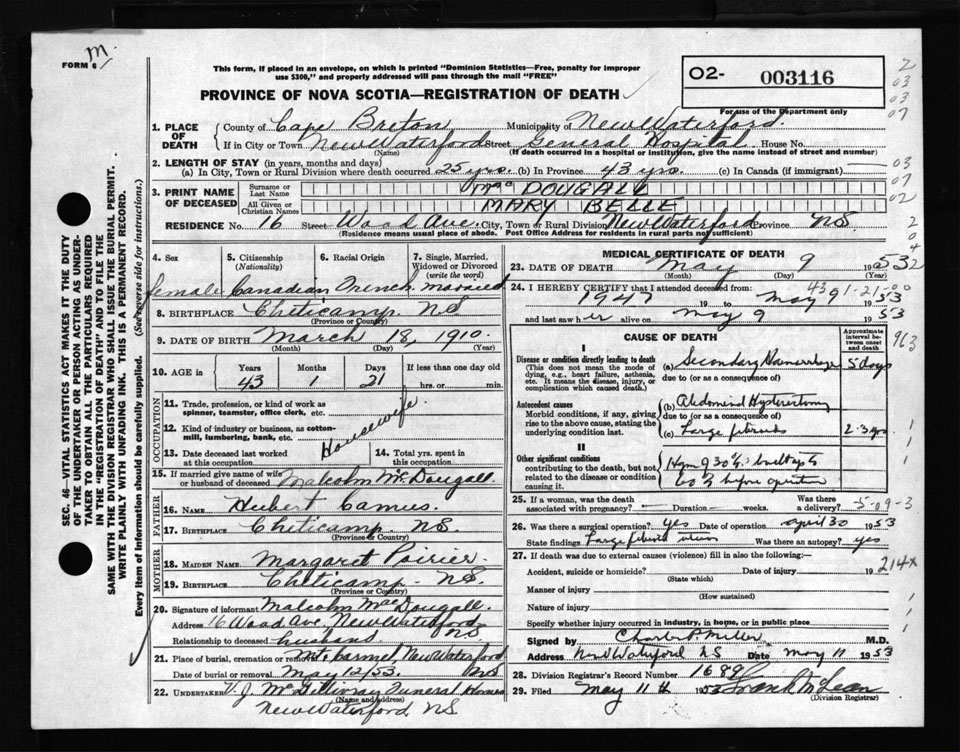 FORM 6
M.
This form, if placed in an envelope, on which is printed "Dominion Statistics—Free, penalty for improper
use $300," and properly addressed will pass through the mail "FREE"
PROVINCE OF NOVA SCOTIA—REGISTRATION OF DEATH
O2- 003116
For use of the Department only
1. PLACE OF DEATH
County of Cape Breton Municipality of New Waterford.
If in City or Town New Waterford Street General Hospital House No.
(Name) (If death occurred in a hospital or institution, give the name instead of street and number)
2. LENGTH OF STAY (in years, months and days)
(a) In City, Town or Rural Division where death occurred 25 yrs. (b) In Province 43 yrs. (c) In Canada (if immigrant)
3. PRINT NAME OF DECEASED
Surname or Last Name Mac DOUGALL
All Given or Christian Names MARY BELLE
RESIDENCE No. 16 Street Wood Ave. City, Town or Rural Division New Waterford Province NS
(Residence means usual place of abode. Post Office Address for residents in rural parts not sufficient)
4. Sex 5. Citizenship (Nationality) 6. Racial Origin 7. Single, Married, Widowed or Divorced (write the word)
female Canadian French married
8. BIRTHPLACE Cheticamp NS
(Province or Country)
9. DATE OF BIRTH March 18, 1910.
(Month) (Day) (Year)
10. AGE in Years Months Days If less than one day
43 1 21 hrs. or min.
OCCUPATION
11. Trade, profession, or kind of work as
spinner, teamster, office clerk, etc.
12. Kind of industry or business, as cotton-
mill, lumbering, bank, etc.
Housewife
13. Date deceased last worked at this occupation 14. Total yrs. spent in this occupation
15. If married give name of wife
or husband of deceased Malcolm McDougall.
FATHER
16. NAME Hubert Camus.
17. BIRTHPLACE Cheticamp NS
(Province or Country)
MOTHER
18. MAIDEN NAME Margaret Poirier.
19. BIRTHPLACE Cheticamp NS.
(Province or Country)
20. Signature of informant Malcolm MacDougall.
Address 16 Wood Ave. New Waterford NS
Relationship to deceased husband
21. Place of burial, cremation or removal Mt. Carmel New Waterford NS
Date of burial or removal May 12/53.
22. UNDERTAKER V. J. McGillivray Funeral Home
(Name and Address)
New Waterford NS.
MEDICAL CERTIFICATE OF DEATH
23. DATE OF DEATH May 9 1953
(Month) (Day) (Year)
24. I HEREBY CERTIFY that I attended deceased from:
1947 19 to May 9 1953
and last saw her alive on May 9 1953
CAUSE OF DEATH
Approximate interval between onset and death
I
Disease or condition directly leading to death
(This does not mean the mode of
dying, e.g., heart failure, asthenia,
etc. It means the disease, injury, or
complication which caused death.)
(a) Secondary Hamorrhage 5 days
due to (or as a consequence of)
Antecedent causes
Morbid conditions, if any, giving
rise to the above cause, stating the
underlying condition last.
(b) Abdominal Hysterectomy
due to (or as a consequence of)
(c) Large fibroids 2-3 yrs.
II
Other significant conditions
contributing to the death, but not
related to the disease or condition
causing it.
before operation
25. If a woman, was the death associated with pregnancy? — Duration — weeks. Was there a delivery? —
26. Was there a surgical operation? yes Date of operation April 30 1953
State findings Large fibroid uterus Was there an autopsy? yes
27. If death was due to external causes (violence) fill in also the following:—
Accident, suicide or homicide? Date of injury 19
(State which)
Manner of injury
(How sustained)
Nature of injury
Specify whether injury occurred in industry, in home, or in public place
Signed by Charles P Miller M.D.
Address New Waterford NS Date May 11 1953
28. Division Registrar's Record Number 1689
29. Filed May 11th 1953 Frank McLean
(Division Registrar)
2
03
03
07
03
07
02
2
04
2
963
5-09-3
214x
SEC. 46—VITAL STATISTICS ACT MAKES IT THE DUTY
OF THE UNDERTAKER OR PERSON ACTING AS UNDER-
TAKER TO OBTAIN ALL THE PARTICULARS REQUIRED
IN THE "REGISTRATION OF DEATH" AND TO FILE THE
SAME WITH THE DIVISION REGISTRAR WHO SHALL ISSUE THE BURIAL PERMIT.
WRITE PLAINLY WITH UNFADING INK. THIS IS A PERMANENT RECORD.
Every item of information should be carefully supplied. (See reverse side for instructions.)